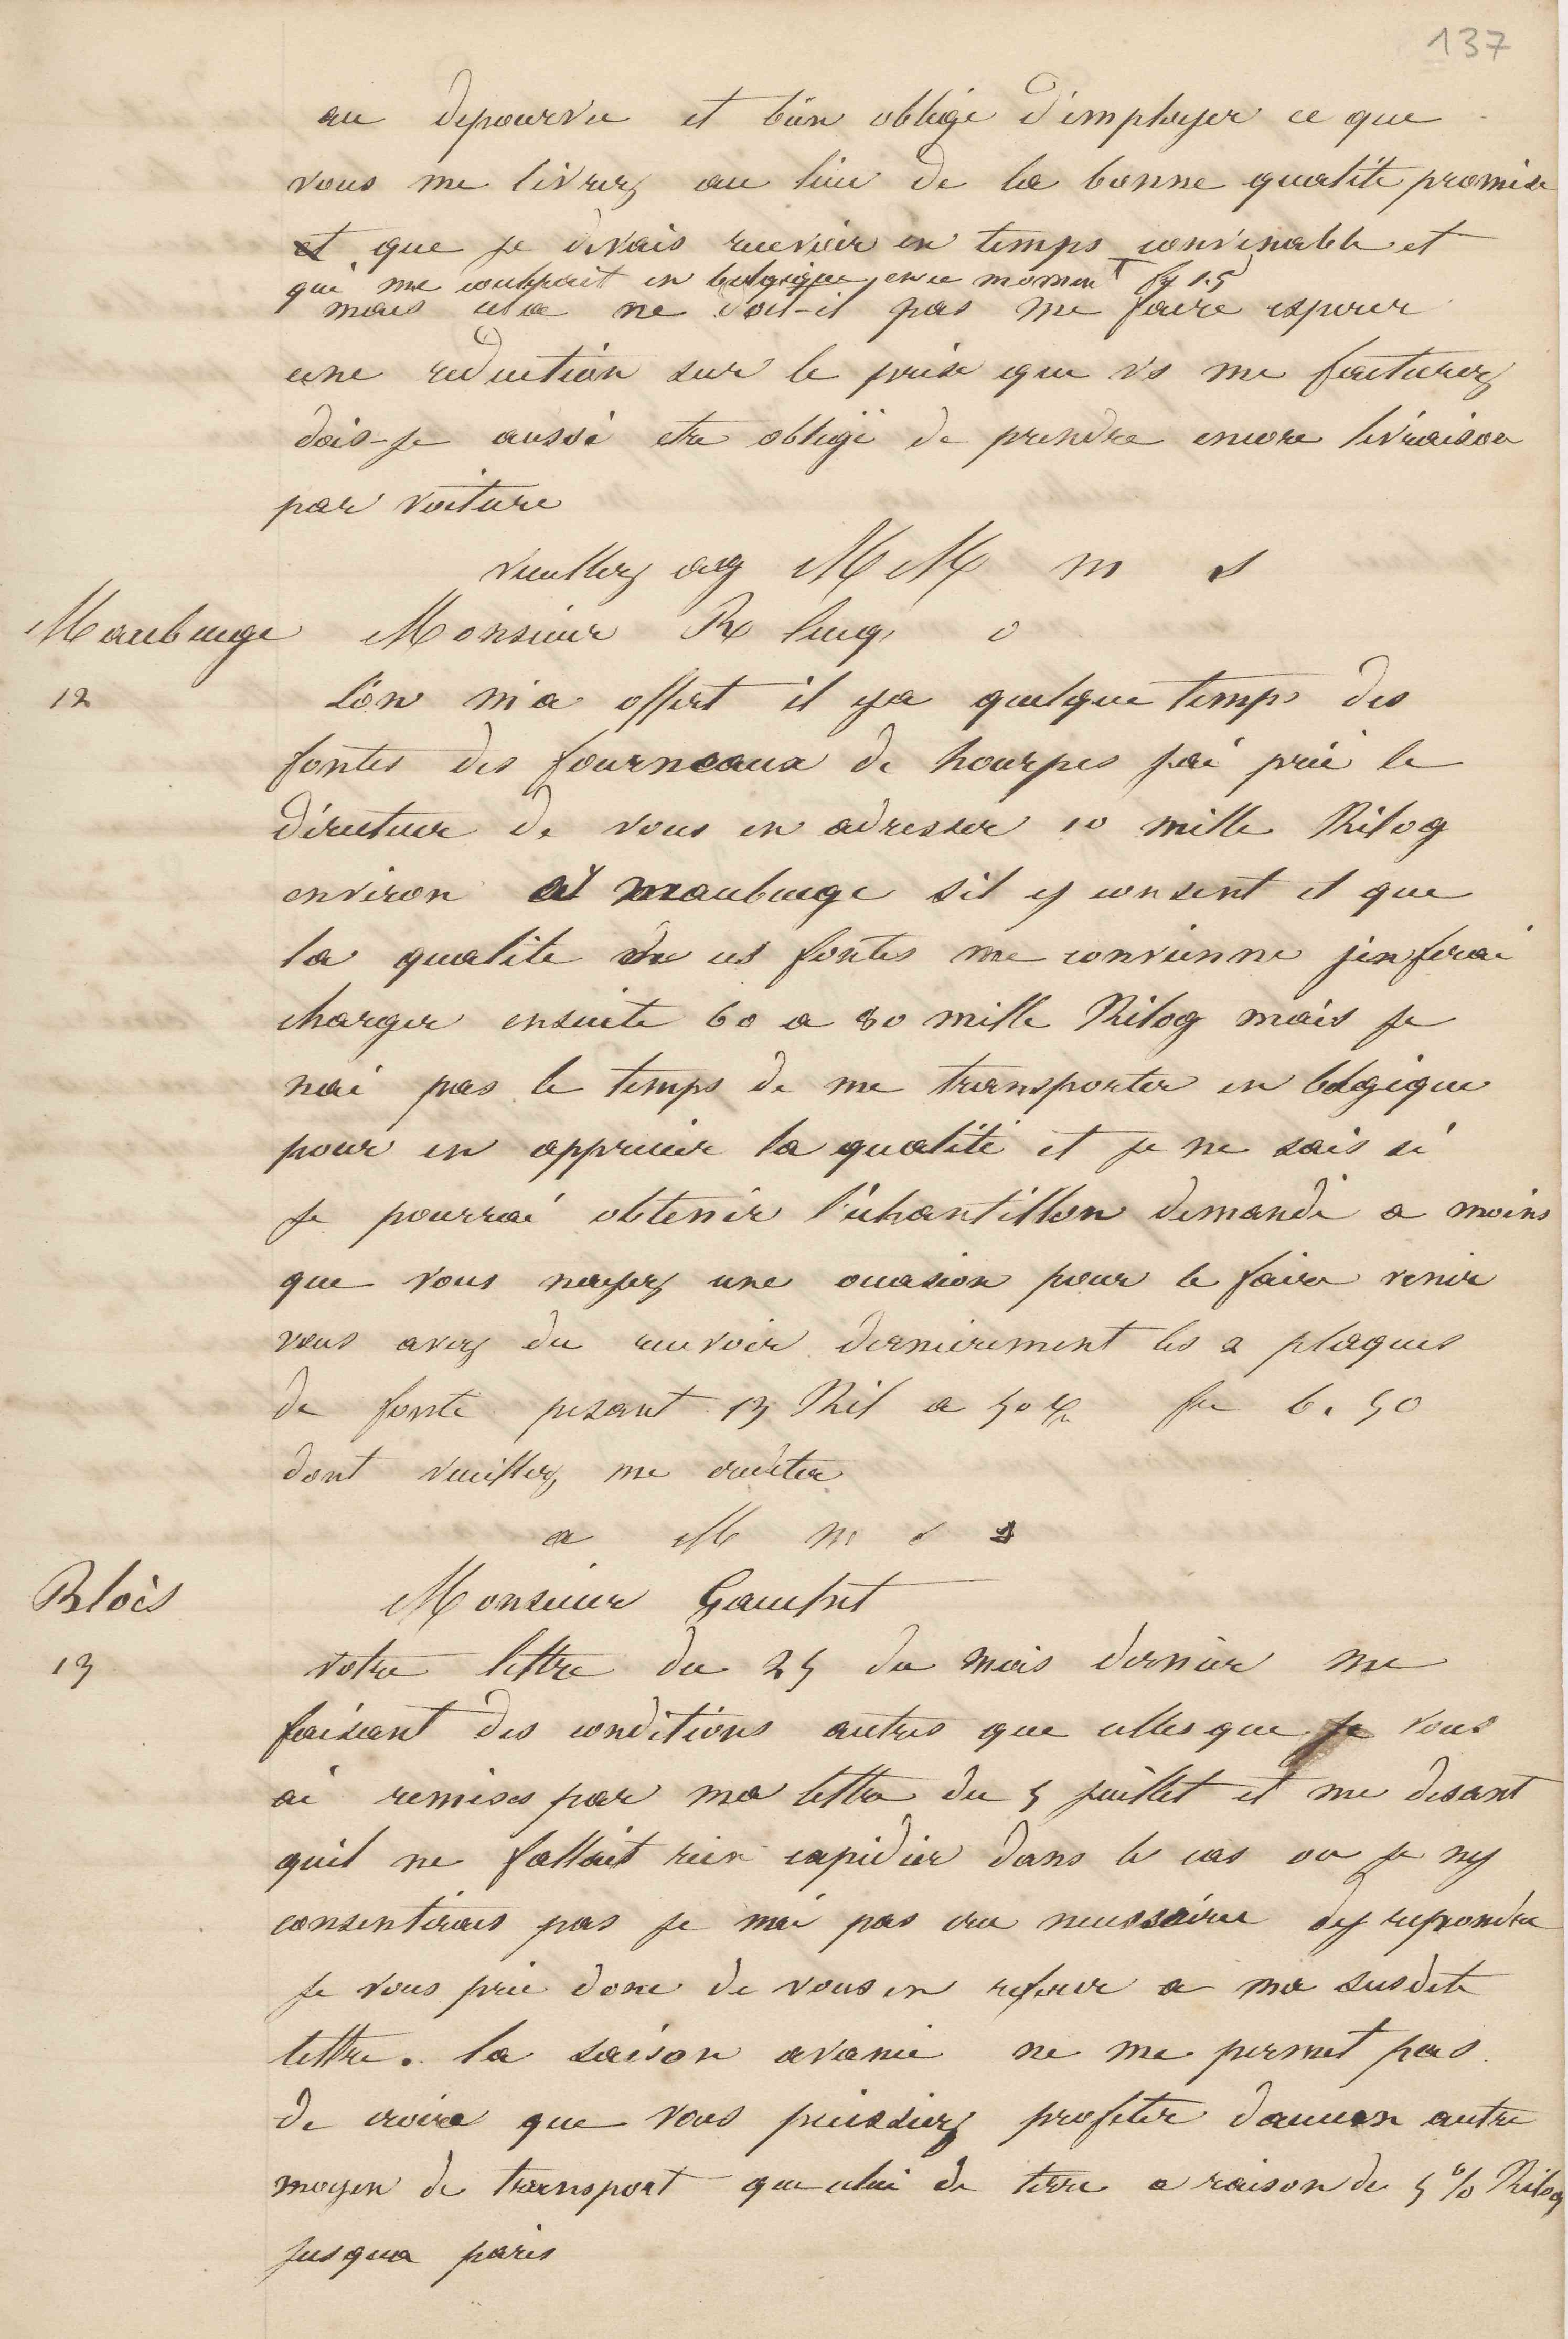 137
au depourvu et bien obligé d'employer ce que
vous me livrez au lieu de la bonne qualité promise
et que je devais recevoir en temps convenable et
qui me coutterait en belgique en ce moment fs 15
mais cela ne doit-il pas me faire esperer
une reduction sur le prix que vs me facturez
dois-je aussi etre obligé de prendre encore livraison
par voiture
veuillez ag MM m s
Maubeuge Monsieur R
12 L'on m'a offert il y a quelque temps des
fontes des fourneaux de hourpes j'ai prié le
directeur de vous en adresser 10 mille Kilog
environ a maubeuge sil y consent et que
la qualite de ces fontes me convienne j'en ferai
charger ensuite 60 a 80 mille Kilog mais je
nai pas le temps de me transporter en belgique
pour en apprecier la qualité et je ne sais si
je pourrai obtenir l'echantillon demandé a moins
que vous nayez une occasion pour le faire venir
vous avez du recevoir dernierement les 2 plaques
de fonte pesant 13 Kil a 50 % fr 6.50
dont veuillez me crediter
a M m s s
Blois Monsieur Gauchet
13 votre lettre du 25 du mois dernier me
faisant des conditions autres que celles que je vous
ai remises par ma lettre du 5 juillet et me disant
quil ne fallait rien expedier dans le cas ou je ny
consentirais pas je n'ai pas cru necessaire dy repondre
je vous prie donc de vous en referer a ma susdite
lettre. la saison avancé ne me permet pas
de croire que vous puissiez profiter daucun autre
moyen de transport que celui de terre a raison de 5 % Kilog
jusqua paris